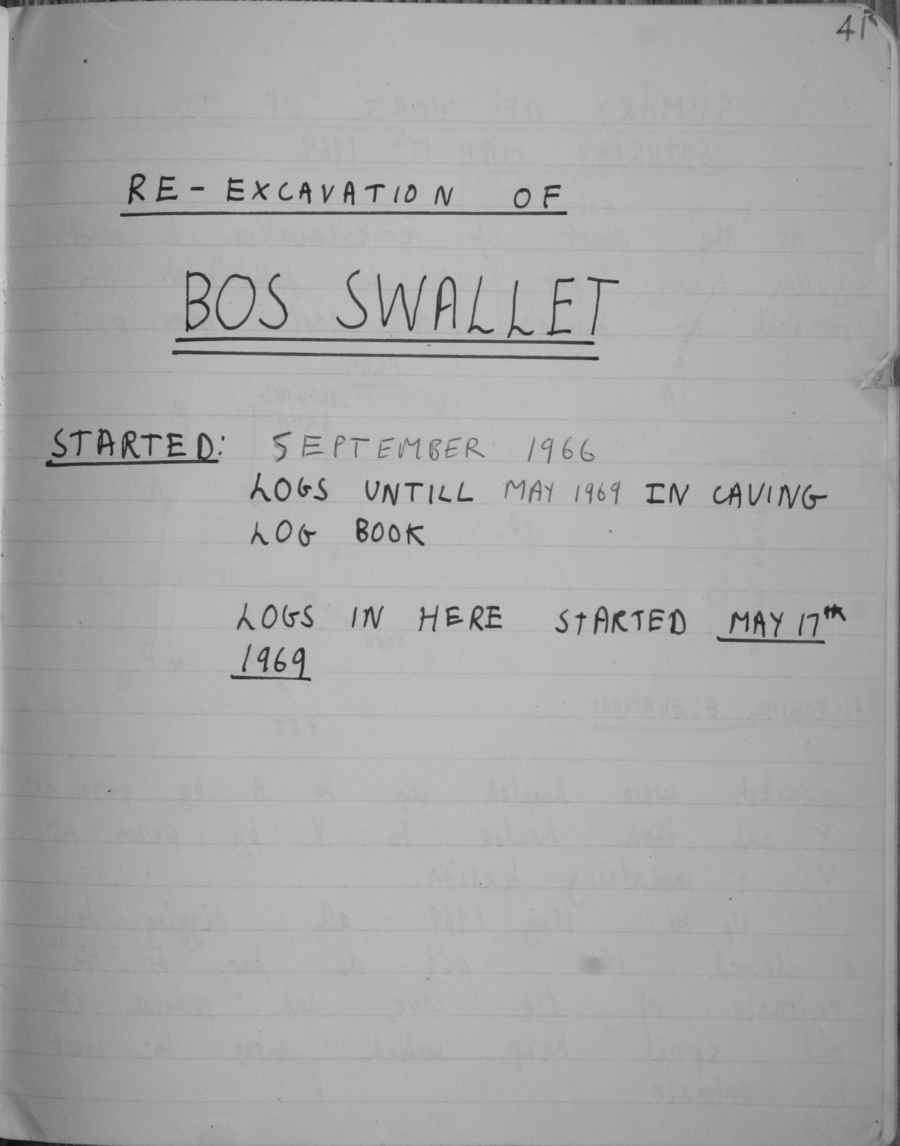 41
RE-EXCAVATION OF
BOS SWALLET
STARTED: SEPTEMBER 1966
LOGS UNTILL MAY 1969 IN CAVING
LOG BOOK
LOGS IN HERE STARTED MAY 17th
1969